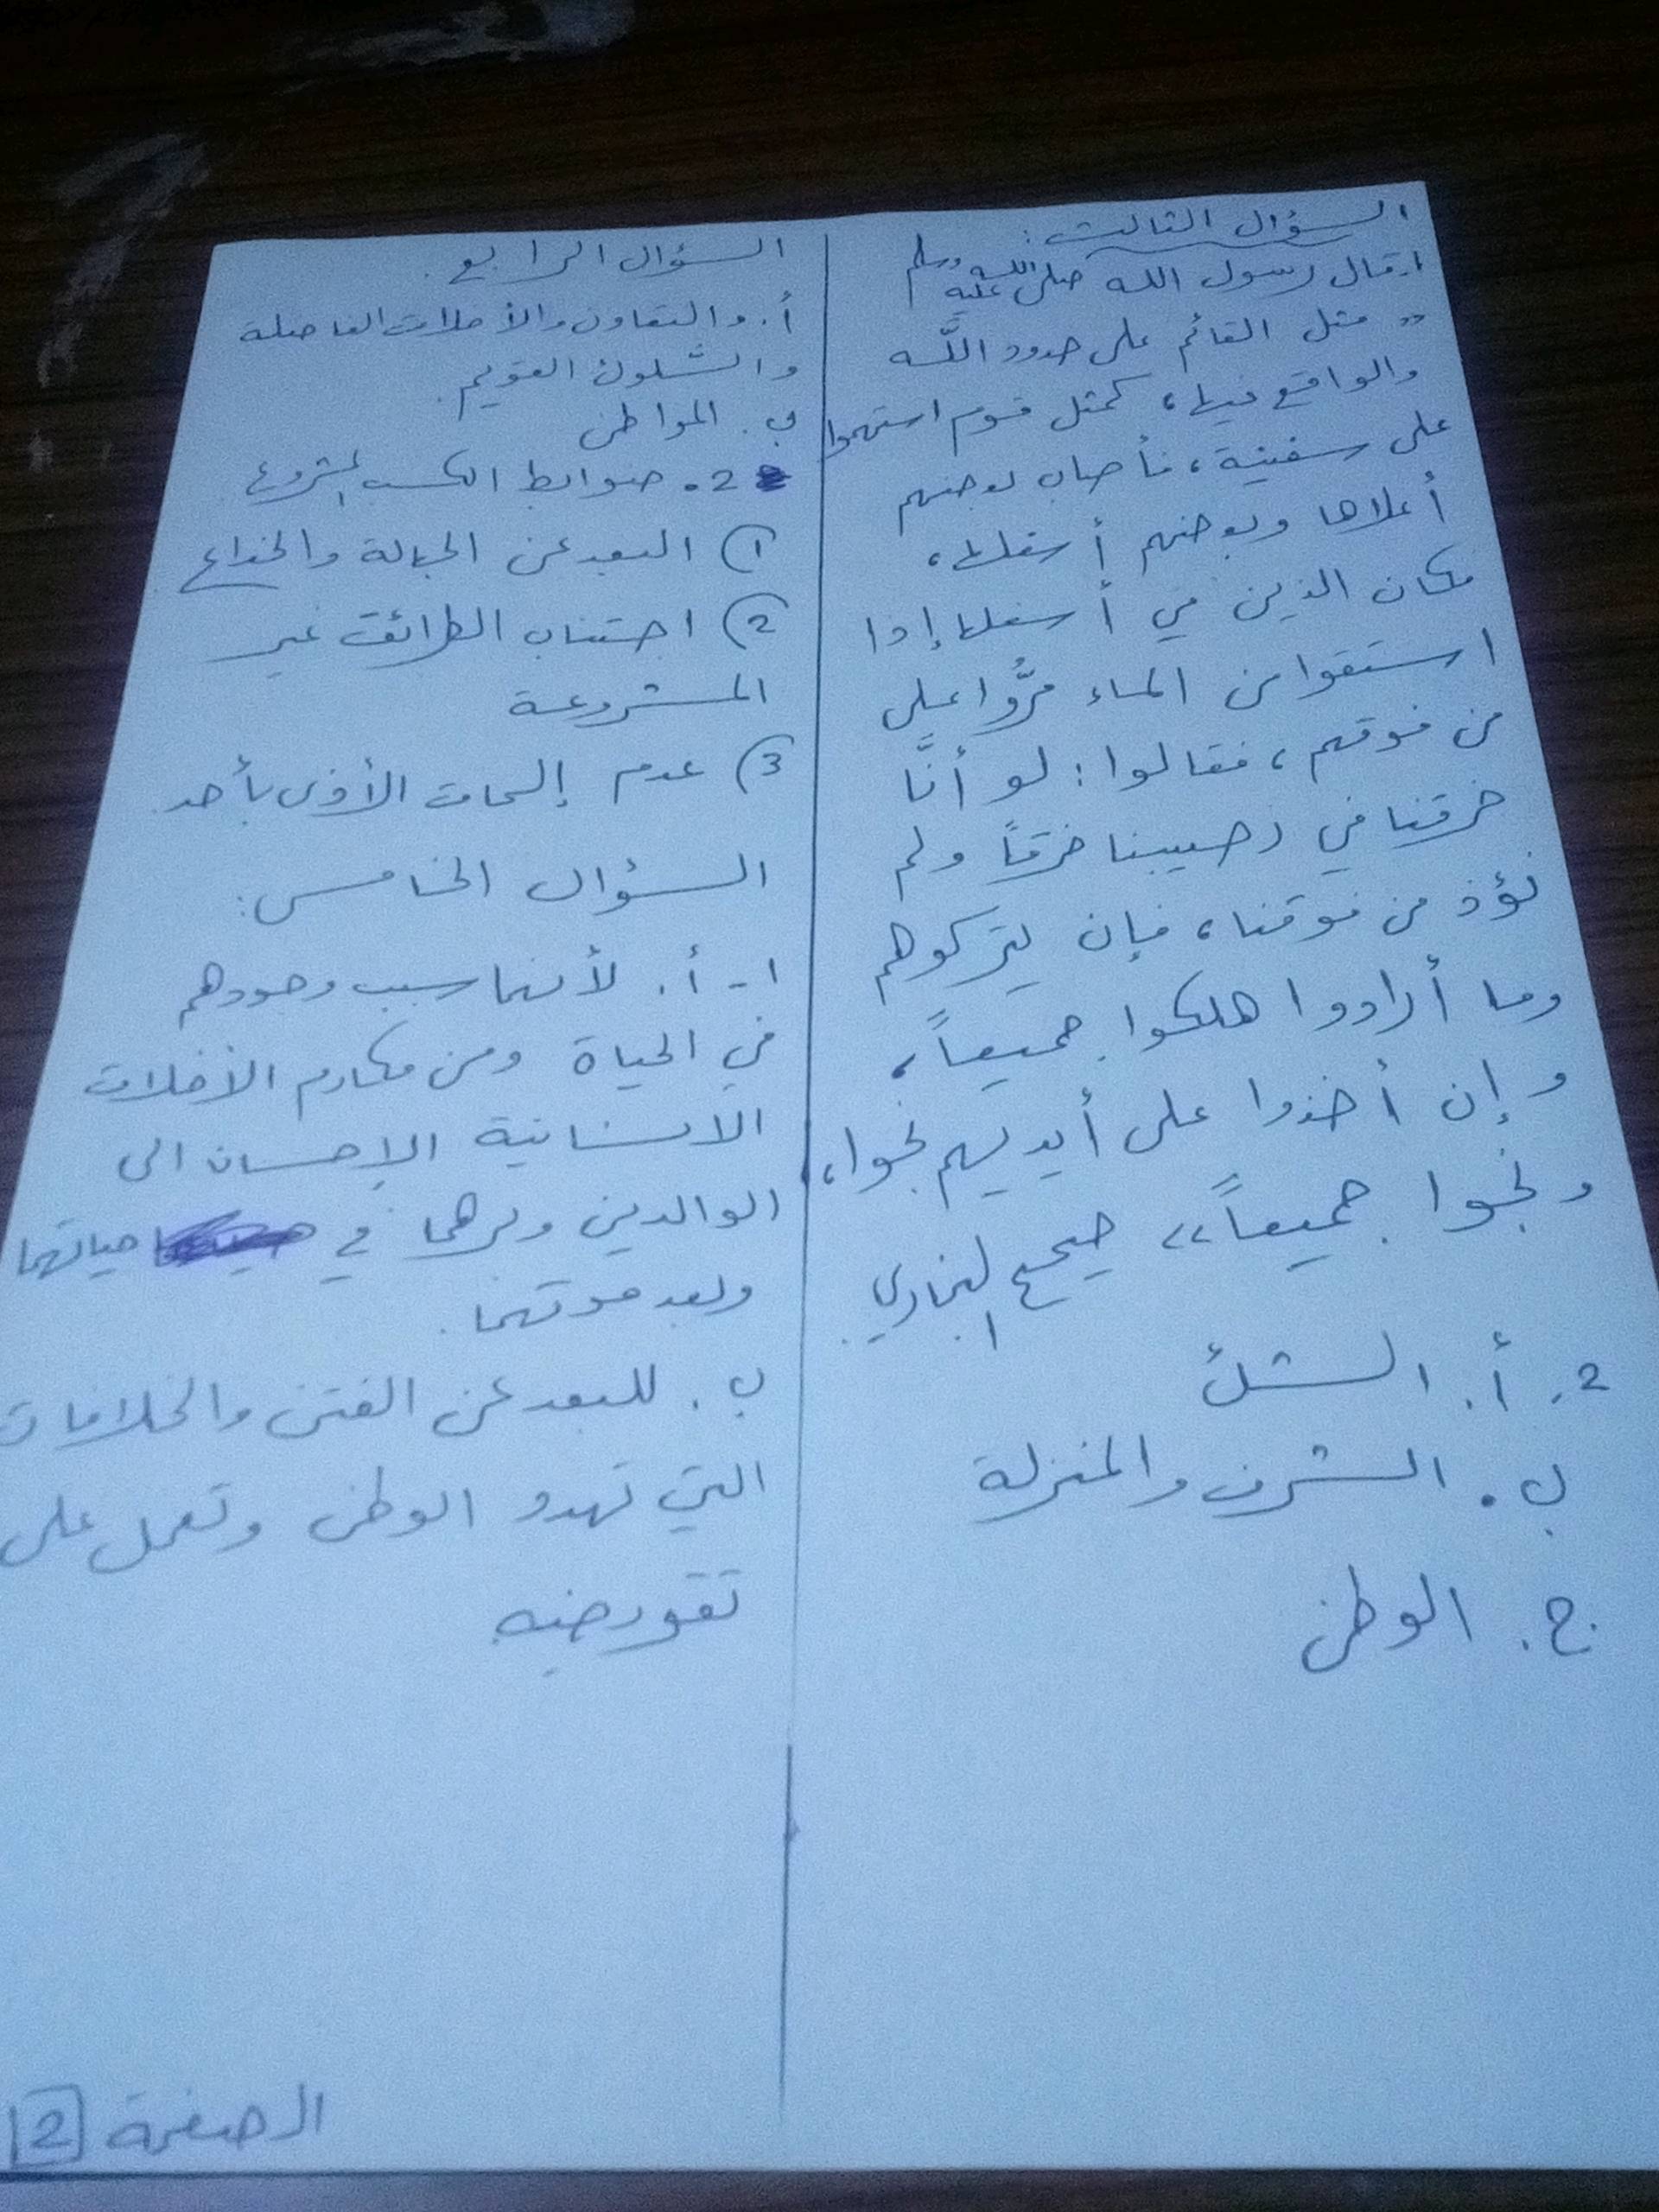 السؤال الثالث:
1. قال رسول الله صلى الله عليه وسلم
" مثل القائم على حدود اللَّه
والواقع فيها، كمثل قوم استهموا
على سفينة، فأصاب بعضهم
أعلاها وبعضهم أسفلها،
فكان الذين في أسفلها إذا
استقوا من الماء مرُّوا على
من فوقهم، فقالوا: لو أنَّا
خرقنا في نصيبنا خرقاً ولم
نؤذ من فوقنا، فإن يتركوهم
وما أرادوا هلكوا جميعاً،
وإن أخذوا على أيديهم نجوا،
ونجوا جميعاً" صحيح البخاري.
2. أ. الشك
ب. الشرف والمنزلة
ج. الوطن
السؤال الرابع.
أ. والتعاون والأخلاق الفاضلة
والسلوك القويم.
ب. المواطن
2. ضوابط الكسب المشروع
① البعد عن الجهالة والخداع
② اجتناب الطرائق غير
المشروعة
③ عدم إلحاق الأذى بأحد.
السؤال الخامس:
1- أ. لأنهما سبب وجودهم
في الحياة ومن مكارم الأخلاق
الانسانية الإحسان الى
الوالدين وبرهما في حياتهما
وبعد موتهما.
ب. للبعد عن الفتن والخلافات
التي تهدد الوطن وتعمل على
تقويضه
الصفحة 2